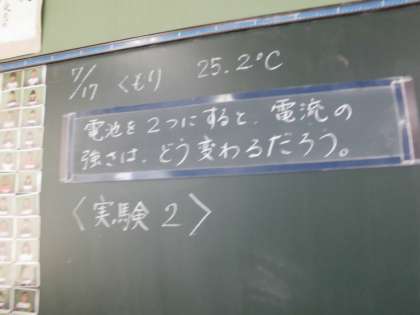 7/17 くもり 25.2°C
電池を2つにすると、電流の
強さは、どう変わるだろう。
〈実験2〉